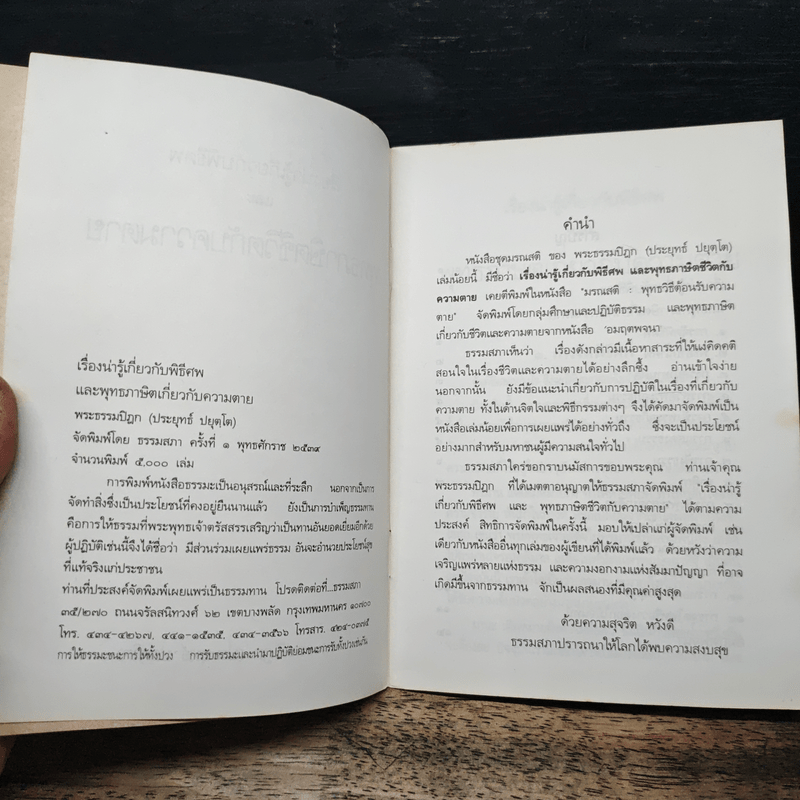 เรื่องน่ารู้เกี่ยวกับพิธีศพ
และพุทธภาษิตเกี่ยวกับความตาย
พระธรรมปิฎก (ประยุทธ์ ปยุตฺโต)
จัดพิมพ์โดย ธรรมสภา ครั้งที่ ๑ พุทธศักราช ๒๕๓๙
จำนวนพิมพ์ ๕,๐๐๐ เล่ม
การพิมพ์หนังสือธรรมะเป็นอนุสรณ์และที่ระลึก นอกจากเป็นการ
จัดทำสิ่งซึ่งเป็นประโยชน์ที่คงอยู่ยืนนานแล้ว ยังเป็นการบำเพ็ญธรรมทาน
คือการให้ธรรมที่พระพุทธเจ้าตรัสสรรเสริญว่าเป็นทานอันยอดเยี่ยมอีกด้วย
ผู้ปฏิบัติเช่นนี้จึงได้ชื่อว่า มีส่วนร่วมเผยแพร่ธรรม อันจะอำนวยประโยชน์สุข
ที่แท้จริงแก่ประชาชน
ท่านที่ประสงค์จัดพิมพ์เผยแพร่เป็นธรรมทาน โปรดติดต่อที่...ธรรมสภา
๓๕/๒๗๐ ถนนจรัลสนิทวงศ์ ๖๒ เขตบางพลัด กรุงเทพมหานคร ๑๐๗๐๐
โทร. ๔๓๔-๔๒๖๗, ๔๔๑-๑๕๓๕, ๔๓๔-๓๕๖๖ โทรสาร.
การให้ธรรมะชนะการให้ทั้งปวง การรับธรรมะและนำมาปฏิบัติย่อมชนะการรับทั้งปวงเช่นกัน
คำนำ
หนังสือชุดมรณสติ ของ พระธรรมปิฎก (ประยุทธ์ ปยุตฺโต)
เล่มน้อยนี้ มีชื่อว่า เรื่องน่ารู้เกี่ยวกับพิธีศพ และพุทธภาษิตชีวิตกับ
ความตาย เคยตีพิมพ์ในหนังสือ "มรณสติ : พุทธวิธีต้อนรับความ
ตาย" จัดพิมพ์โดยกลุ่มศึกษาและปฏิบัติธรรม และพุทธภาษิต
เกี่ยวกับชีวิตและความตายจากหนังสือ "อมฤตพจนา
ธรรมสภาเห็นว่า เรื่องดังกล่าวมีเนื้อหาสาระที่ให้แง่คิดคติ
สอนใจในเรื่องชีวิตและความตายได้อย่างลึกซึ้ง อ่านเข้าใจง่าย
นอกจากนั้น ยังมีข้อแนะนำเกี่ยวกับการปฏิบัติในเรื่องที่เกี่ยวกับ
ความตาย ทั้งในด้านจิตใจและพิธีกรรมต่างๆ จึงได้คัดมาจัดพิมพ์เป็น
หนังสือเล่มน้อยเพื่อการเผยแพร่ได้อย่างทั่วถึง ซึ่งจะเป็นประโยชน์
อย่างมากสำหรับมหาชนผู้มีความสนใจทั่วไป
ธรรมสภาใคร่ขอกราบนมัสการขอบพระคุณ ท่านเจ้าคุณ
พระธรรมปิฎก ที่ได้เมตตาอนุญาตให้ธรรมสภาจัดพิมพ์ "เรื่องน่ารู้
เกี่ยวกับพิธีศพ และ พุทธภาษิตชีวิตกับความตาย" ได้ตามความ
ประสงค์ สิทธิการจัดพิมพ์ในครั้งนี้ มอบให้เปล่าแก่ผู้จัดพิมพ์ เช่น
เดียวกับหนังสืออื่นทุกเล่มของผู้เขียนที่ได้พิมพ์แล้ว ด้วยหวังว่าความ
เจริญแพร่หลายแห่งธรรม และความงอกงามแห่งสัมมาปัญญา ที่อาจ
เกิดมีขึ้นจากธรรมทาน จักเป็นผลสนองที่มีคุณค่าสูงสุด
ด้วยความสุจริต หวังดี
ธรรมสภาปรารถนาให้โลกได้พบความสงบสุข